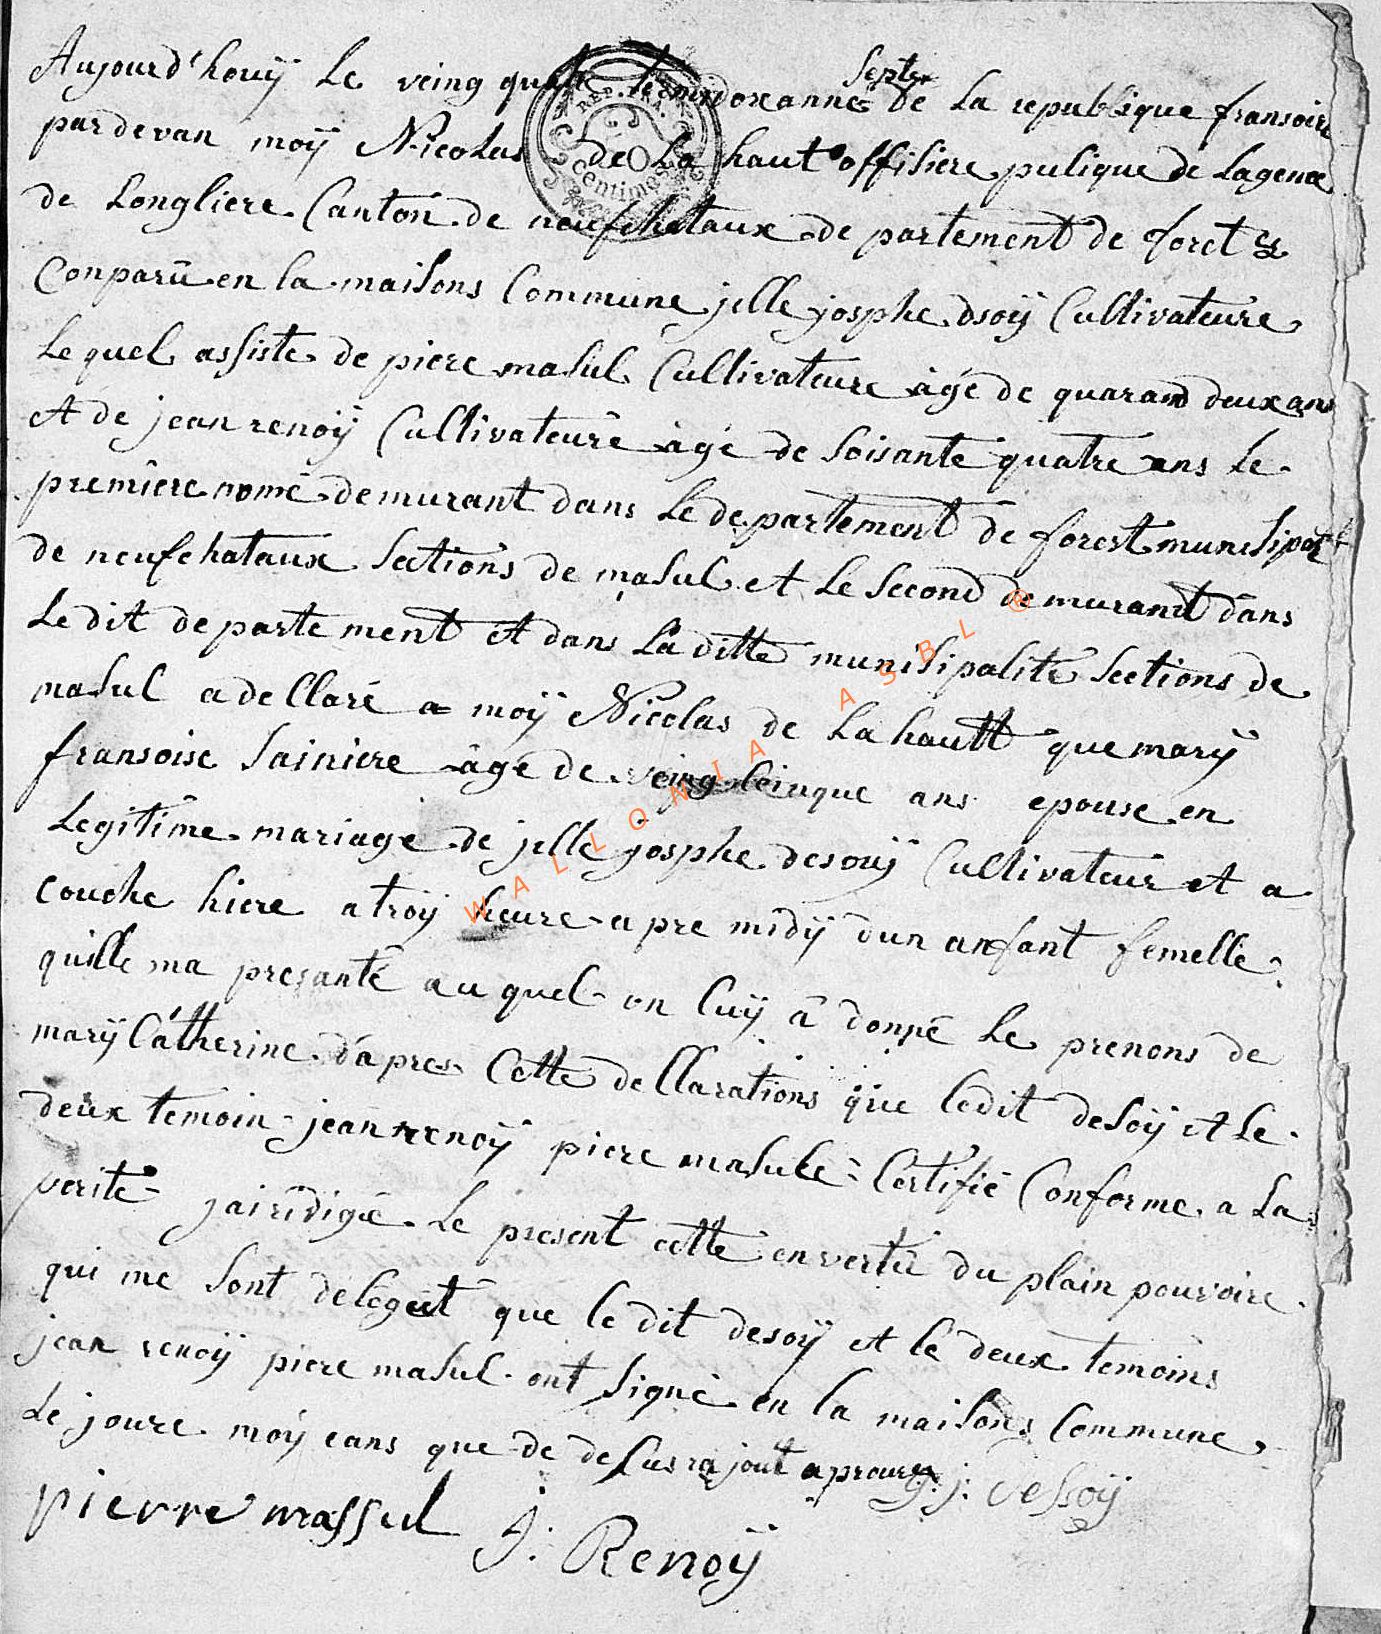 Aujourd'houÿ Le veing quatre annes Septe de La republique fransoire
pardevan moÿ Nicolas de La haut offisiere pulique de Lagence
de Longliere Canton de neufchataux de partement de foret est
Conparü en la maisons Commune jille josphe dsoÿ Cultivateure
Le quel assiste de piere masul Cultivateure àgé de quarand deux ans
et de jean renoÿ Cultivateure àgé de Soisante quatre ans Le
premiere nomé demurant dans Le departement de forest munisipat
de neufchataux Sections de masul et Le Second demurant dans
Le dit de parte ment et dans La ditte munisipalite Sections de
masul a de Claré a moÿ Nicolas de La hautt que marÿ
fransoise Sainiere àgé de veing Cinque ans epouse en
Legitime mariage de jille josphe desouÿ Cultivateur et a
couche hiere a troÿ heure a pre midÿ dun anfant femelle
quille ma presanté au quel on luÿ â donné Le prenons de
marÿ Catherine d'apres Cette de Clarations que Ledit desoÿ et Le
deux temoin jean renoÿ piere masule Certifié Conforme a La
verite j'airidigé Le present cette en vertü du plain pouvoire
qui me Sont delegeut que le dit desoÿ et le deux temoins
jean renoÿ piere masul ont Signé en la maisons Commune
Le joure moÿ eans que de desus rajout aprouve
g: j: dessoÿ
pierre massul
J: Renoÿ
REP. FRA.
centimes
WALLONIA ASBL ®